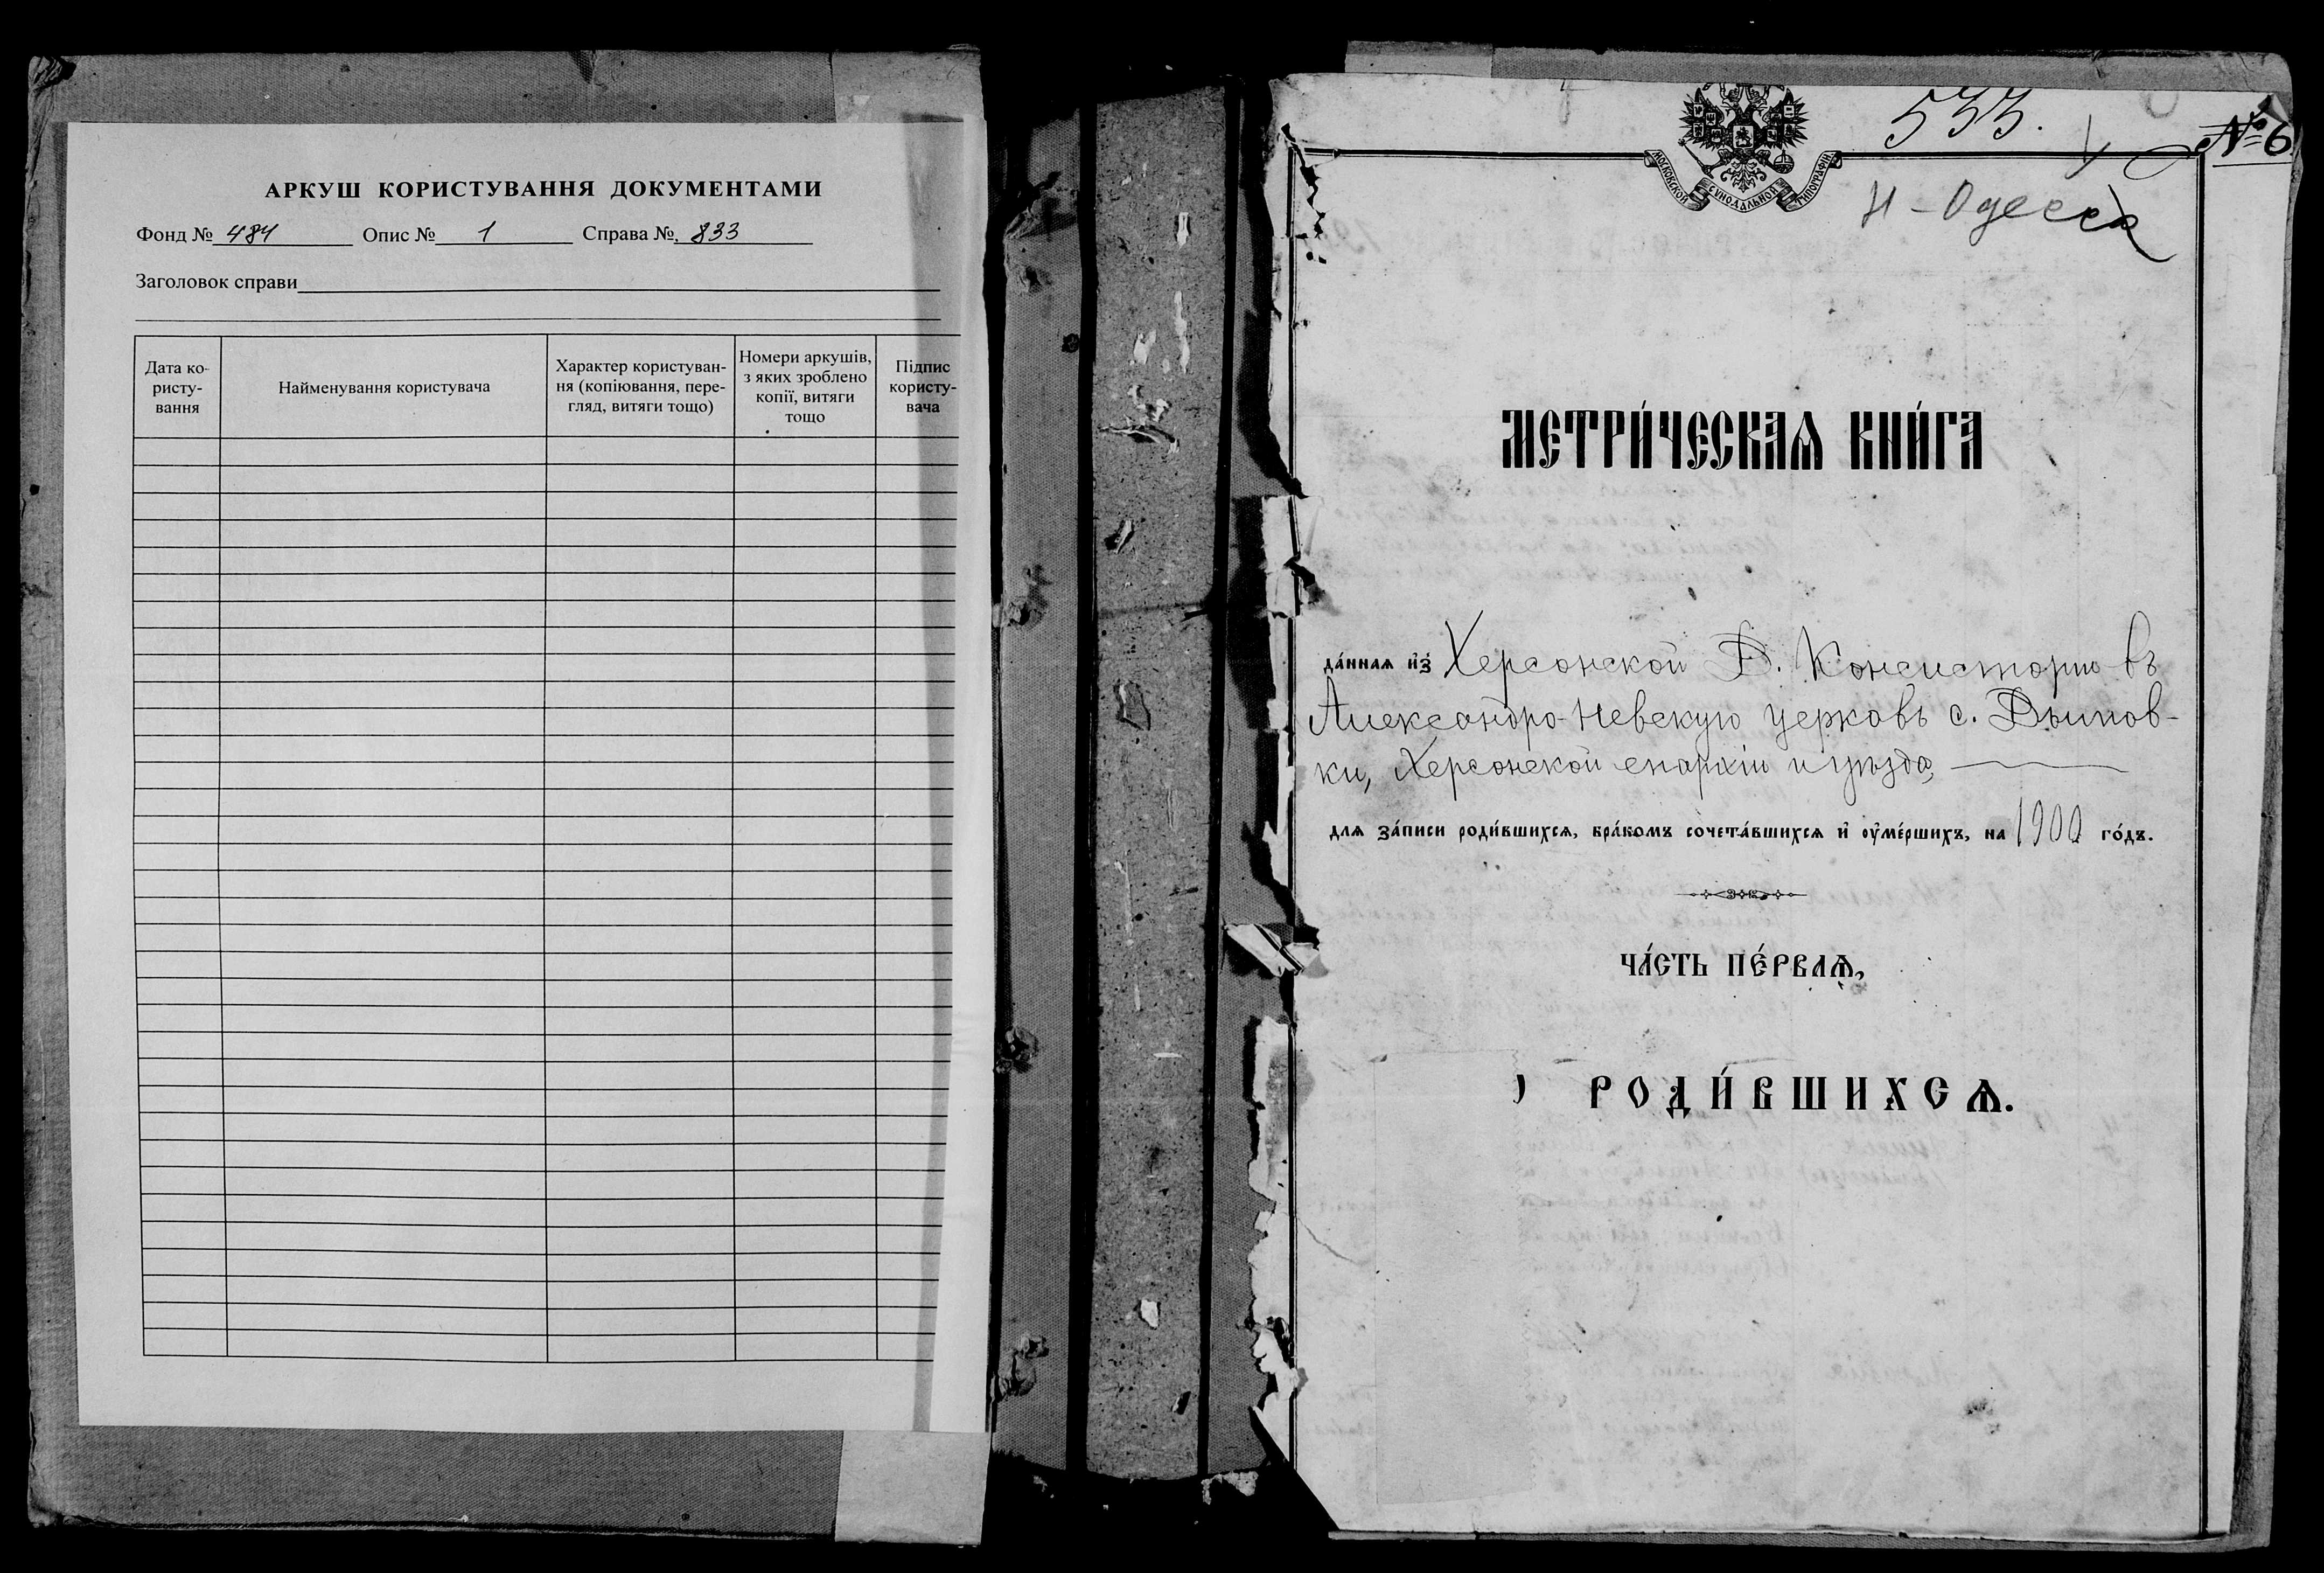 АРКУШ КОРИСТУВАННЯ ДОКУМЕНТАМИ
Фонд № 484 Опис № 1 Справа № 833
Заголовок справи
Дата ко-
ристу-
вання
Найменування користувача
Характер користуван-
ня (копіювання, пере-
гляд, витяги тощо)
Номери аркушів,
з яких зроблено
копії, витяги
тощо
Підпис
користу-
вача
533.
№ 6
МОСКОВСКОЙ СѴНОДАЛЬНОЙ ТИПОГРАФІИ
Н-Одесса
МЕТРИ́ЧЕСКАѦ КНИ́ГА
да́ннаѧ и҆з̾ Херсонской Д. Консисторіи въ
Александро-Невскую церковь с. Дымов-
ки, Херсонской епархіи и уѣзда,
длѧ за́писи роди́вшихсѧ, бра́комъ сочета́вшихсѧ и҆ оу҆ме́ршихъ, на 1900 го́дъ.
ЧА́СТЬ ПЕ́РВАѦ,
РОДИ́ВШИХСѦ.